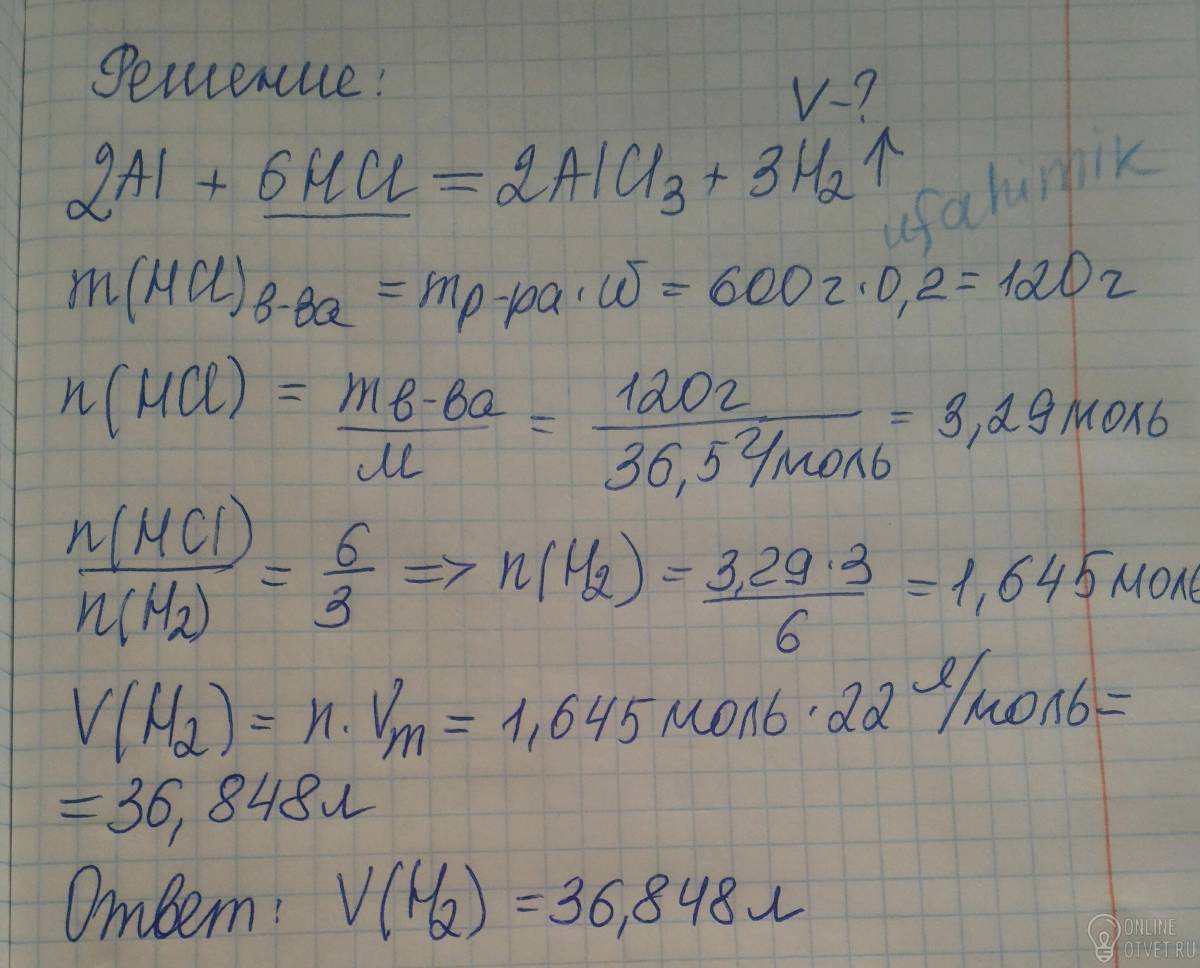 Решение:
V-?
2Al + 6HCl = 2AlCl₃ + 3H₂↑
ufahimik
m(HCl)в-ва = mр-ра · ω = 600г · 0,2 = 120г
n(HCl) = mв-ва / M = 120г / 36,5 г/моль = 3,29 моль
n(HCl) / n(H₂) = 6/3 => n(H₂) = 3,29 · 3 / 6 = 1,645 моль
V(H₂) = n · Vm = 1,645 моль · 22 л/моль =
= 36,848 л
Ответ: V(H₂) = 36,848 л
ONLINE
OTVET.RU